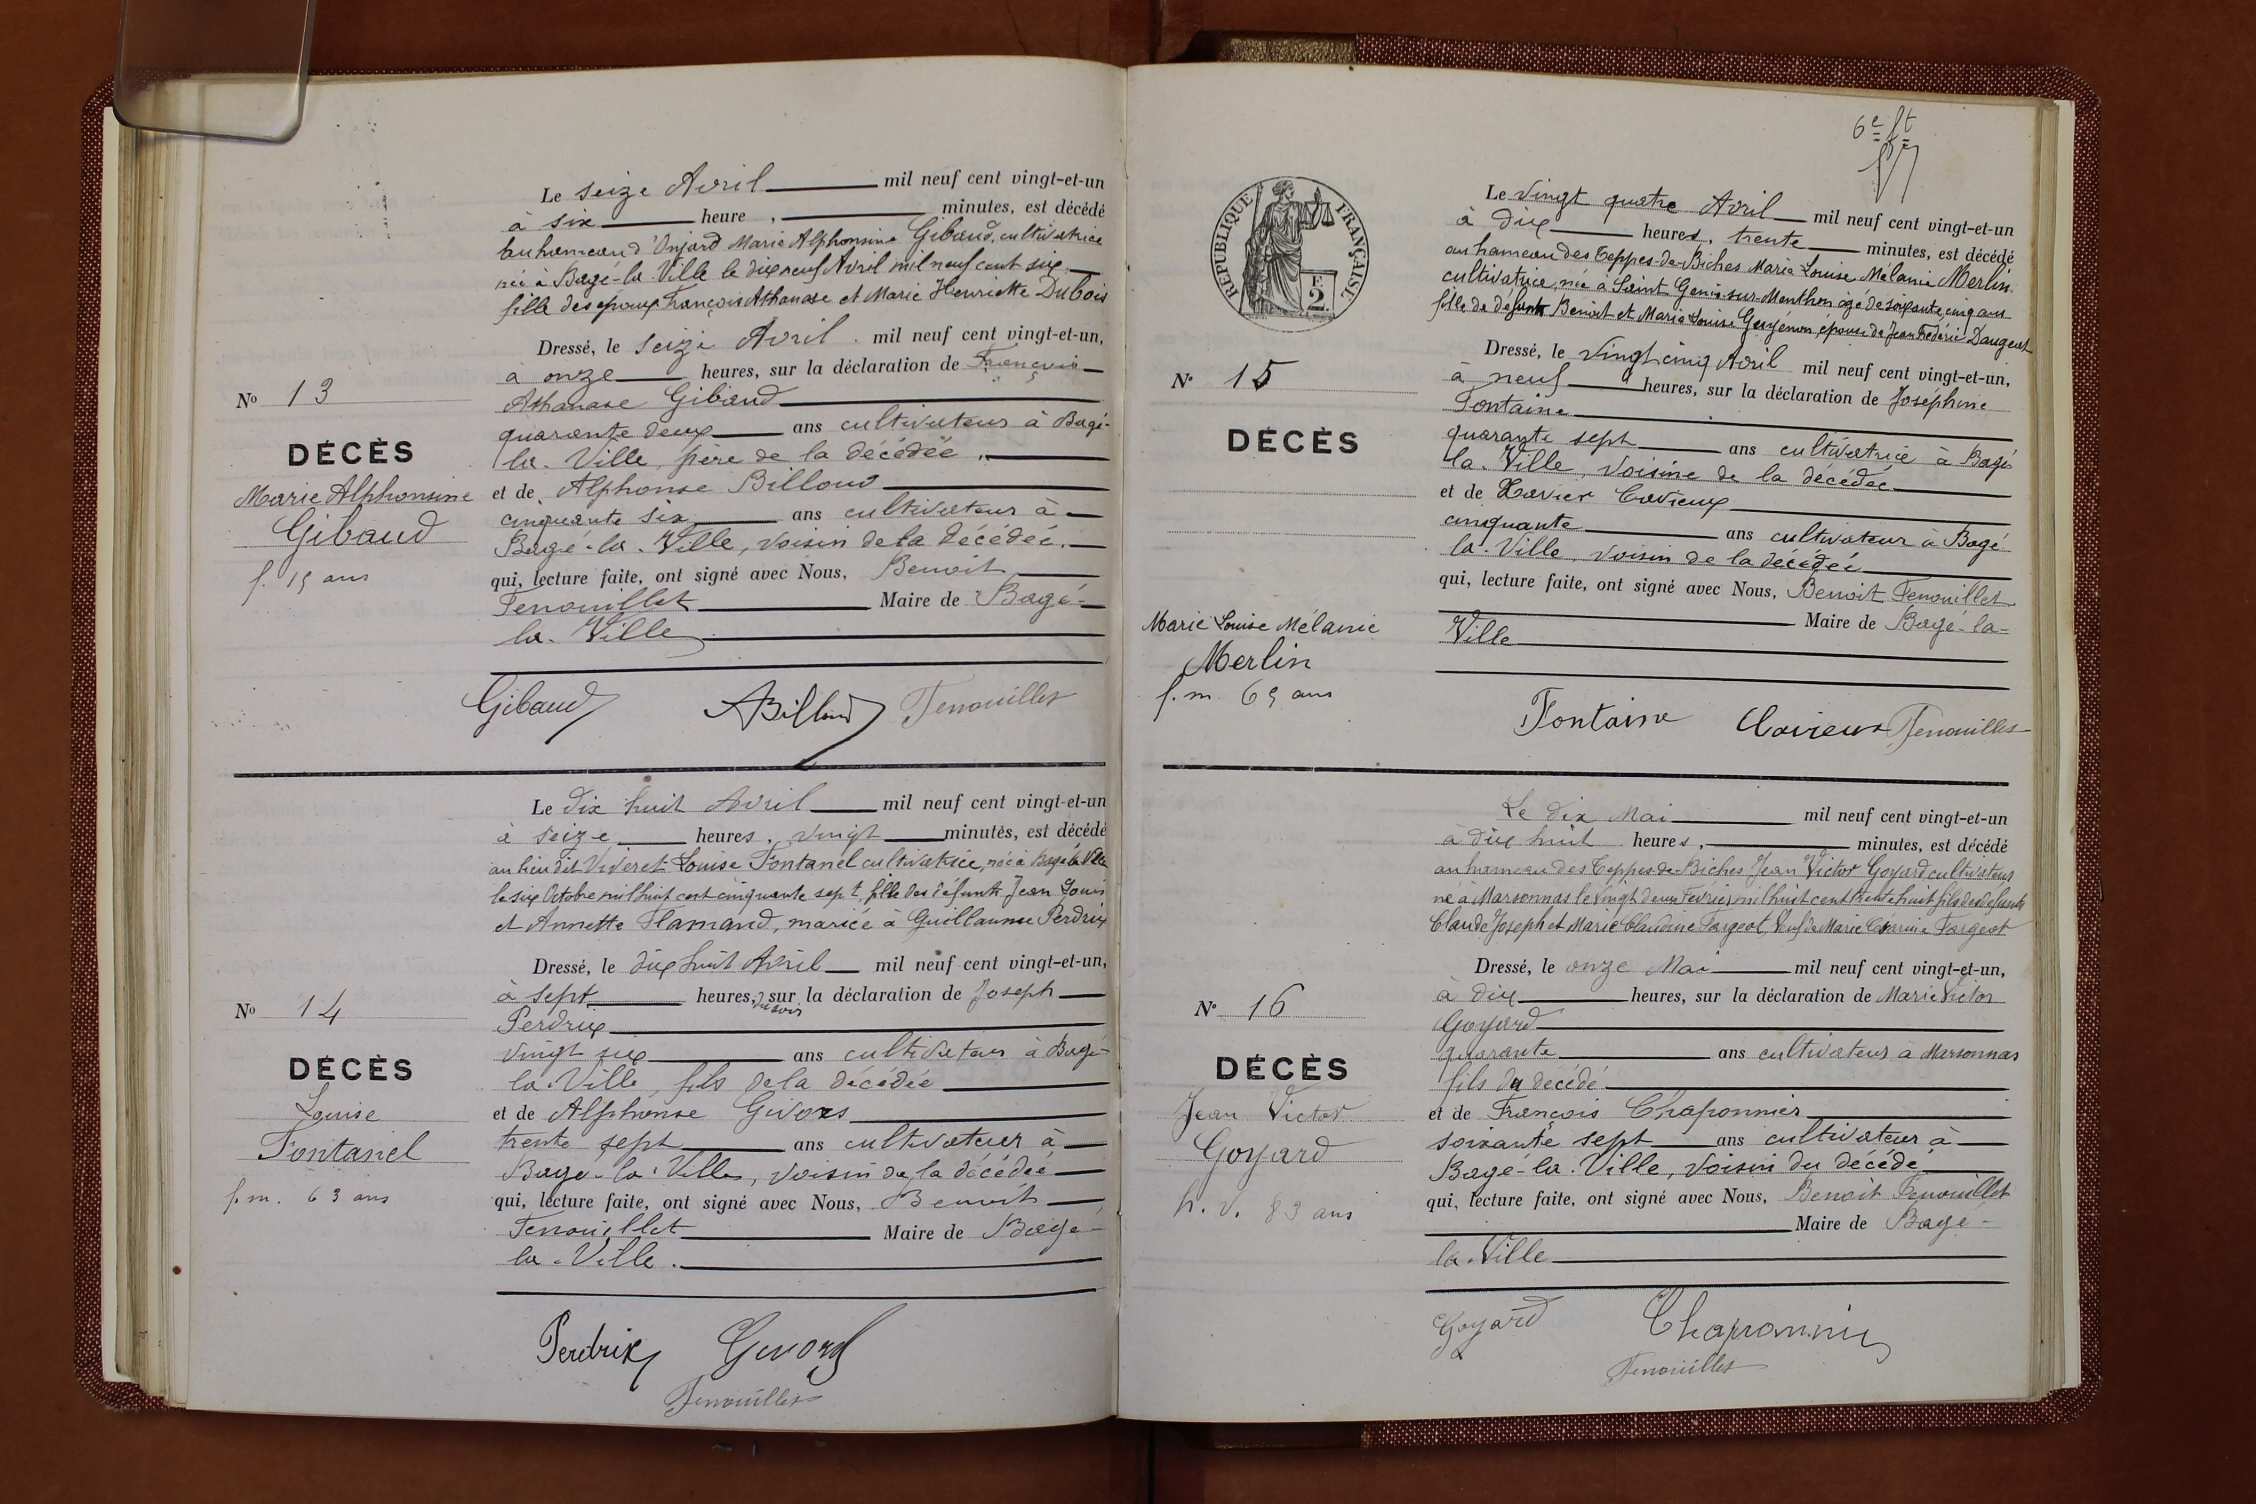 Le seize Avril mil neuf cent vingt-et-un
à six heure , minutes, est décédé
au hameau d'Onjard Marie Alphonsine Gibaud, cultivatrice
née à Bagé-la-Ville le dix neuf Avril mil neuf cent six
fille des époux François Athanase et Marie Henriette Dubois
Dressé, le seize Avril mil neuf cent vingt-et-un,
à onze heures, sur la déclaration de François
Athanase Gibaud
quarante deux ans cultivateur à Bagé-
la-Ville, père de la décédée,
et de Alphonse Billoud
cinquante six ans cultivateur à
Bagé-la-Ville, voisin de la décédée,
qui, lecture faite, ont signé avec Nous, Benoit
Fenouillet Maire de Bagé-
la-Ville
Nº 13
DÉCÈS
Marie Alphonsine
Gibaud
f. 15 ans
Gibaud ABilloud Fenouillet
Le dix huit Avril mil neuf cent vingt-et-un
à seize heures, vingt minutes, est décédé
au lieu dit Viveret Louise Fontanel cultivatrice, née à Bagé la Ville
le six Octobre mil huit cent cinquante sept, fille des défunts Jean Louis
et Annette Flamand, mariée à Guillaume Perdrix
Dressé, le dix huit Avril mil neuf cent vingt-et-un,
à sept heures, du soir sur la déclaration de Joseph
Perdrix
vingt six ans cultivateur à Bagé-
la-Ville, fils de la décédée
et de Alphonse Givors
trente sept ans cultivateur à
Bagé-la-Ville, voisin de la décédée
qui, lecture faite, ont signé avec Nous, Benoit
Fenouillet Maire de Bagé-
la-Ville.
Nº 14
DÉCÈS
Louise
Fontanel
f. m. 63 ans
Perdrix Givors
Fenouillet
6e ft
RÉPUBLIQUE FRANÇAISE
2 F.
Le vingt quatre Avril mil neuf cent vingt-et-un
à dix heures, trente minutes, est décédé
au hameau des Teppes-de-Biches Marie Louise Mélanie Merlin
cultivatrice, née à Saint Genis-sur-Menthon âgé de soixante cinq ans
fille de défunts Benoit et Marie Louise Guyénon, épouse de Jean Frédéric Daugeut
Dressé, le vingt cinq Avril mil neuf cent vingt-et-un,
à neuf heures, sur la déclaration de Joséphine
Fontaine
quarante sept ans cultivatrice à Bagé
la-Ville, voisine de la décédée
et de Xavier Cavieux
cinquante ans cultivateur à Bagé
la-Ville, voisin de la décédée
qui, lecture faite, ont signé avec Nous, Benoit Fenouillet
Maire de Bagé-la-
Ville
Nº 15
DÉCÈS
Marie Louise Mélanie
Merlin
f. m. 65 ans
Fontaine Cavieux Fenouillet
Le dix Mai mil neuf cent vingt-et-un
à dix huit heures, minutes, est décédé
au hameau des Teppes-de-Biches Jean Victor Goyard cultivateur
né à Marsonnas le vingt deux Février mil huit cent trente huit fils des défunts
Claude Joseph et Marie Claudine Fargeot, Veuf de Marie Fargeot
Dressé, le onze Mai mil neuf cent vingt-et-un,
à dix heures, sur la déclaration de Marie Victor
Goyard
quarante ans cultivateur à Marsonnas
fils du décédé
et de François Chaponnier
soixante sept ans cultivateur à
Bagé-la-Ville, voisin du décédé
qui, lecture faite, ont signé avec Nous, Benoit Fenouillet
Maire de Bagé-
la-Ville
Nº 16
DÉCÈS
Jean Victor
Goyard
h. v. 83 ans
Goyard Chaponnier
Fenouillet